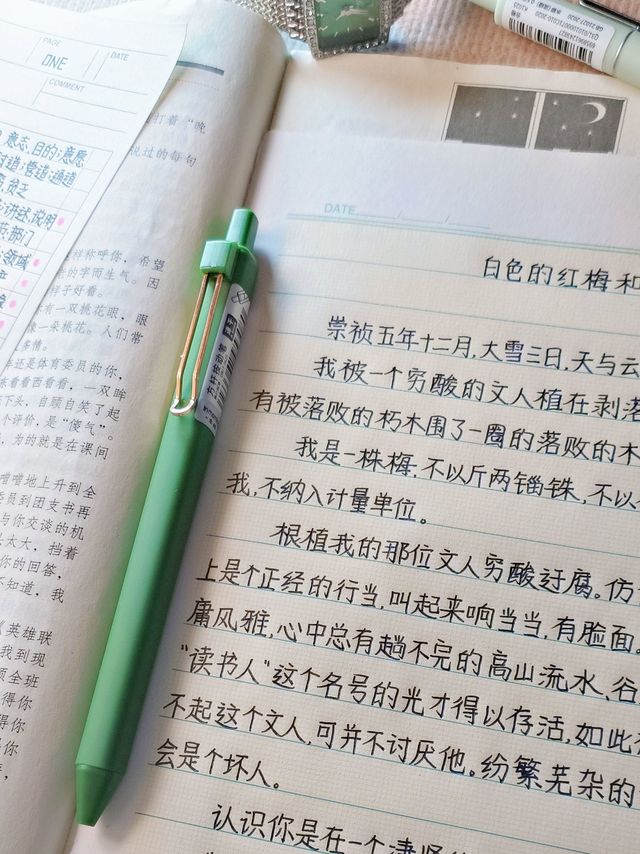 PAGE
DATE
ONE
COMMENT
意志,目的;意愿
讲述,说明
部门
领域
打着“晚
说过的每句
样称呼你，希望
的字而生气。因
样子好看。
有一双桃花眼，眼
像一朵桃花。人们常
多情。
还是体育委员的你，
来看看西看看，一双眸
下头，自顾自笑了起
个评价，是“傻气”。
，为的就是在课间
噌噌地上升到全
委员到团支书再
与你交谈的机
太大，挡着
你的回答，
不知道，我
《英雄联
我到现
顾全班
得你
得你
DATE
白色的红梅 和
崇祯五年十二月,大雪三日,天与云
我被一个穷酸的文人植在剥落
有被落败的朽木围了一圈的落败的木
我是一株梅.不以斤两锱铢,不以
我,不纳入计量单位。
根植我的那位文人穷酸迂腐。仿
上是个正经的行当,叫起来响当当,有脸面。
庸风雅,心中总有趟不完的高山流水、谷
“读书人”这个名号的光才得以存活,如此
不起这个文人,可并不讨厌他。纷繁芜杂的
会是个坏人。
认识你是在一个